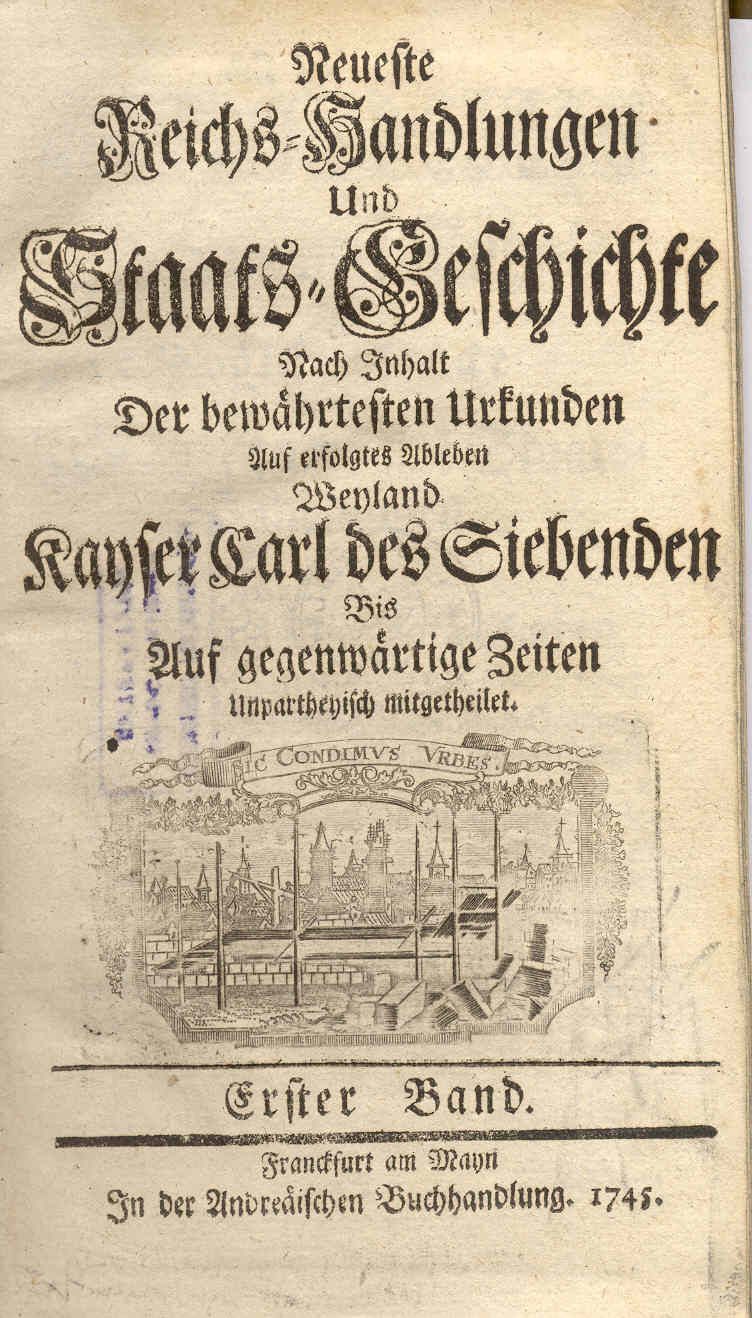 Neueste
Reichs-Handlungen
Und
Staats-Geschichte
Nach Inhalt
Der bewährtesten Urkunden
Auf erfolgtes Ableben
Weyland
Kayser Carl des Siebenden
Bis
Auf gegenwärtige Zeiten
Unpartheyisch mitgetheilet.
SIC CONDIMVS VRBES.
Erster Band.
Franckfurt am Mayn
In der Andreäischen Buchhandlung. 1745.